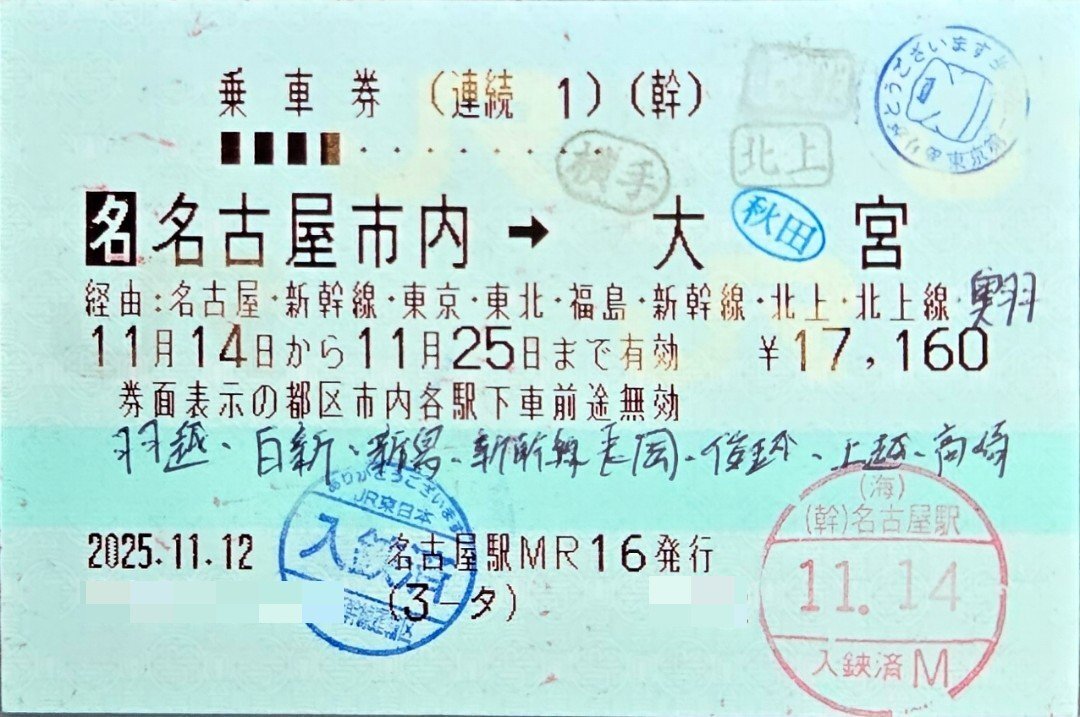 乗車券 (連続 1) (幹)
横手
北上
ありがとうございます
東京第一
名 名古屋市内 → 大宮
秋田
経由:名古屋・新幹線・東京・東北・福島・新幹線・北上・北上線・奥羽
11月14日から11月25日まで有効 ¥17,160
券面表示の都区市内各駅下車前途無効
羽越、白新、新潟、新幹線 長岡、信越、上越、高崎
2025.11.12 名古屋駅MR16発行
(3-タ)
ありがとうございます
JR東日本
入鋏済
(海)
(幹)名古屋駅
11.14
入鋏済M